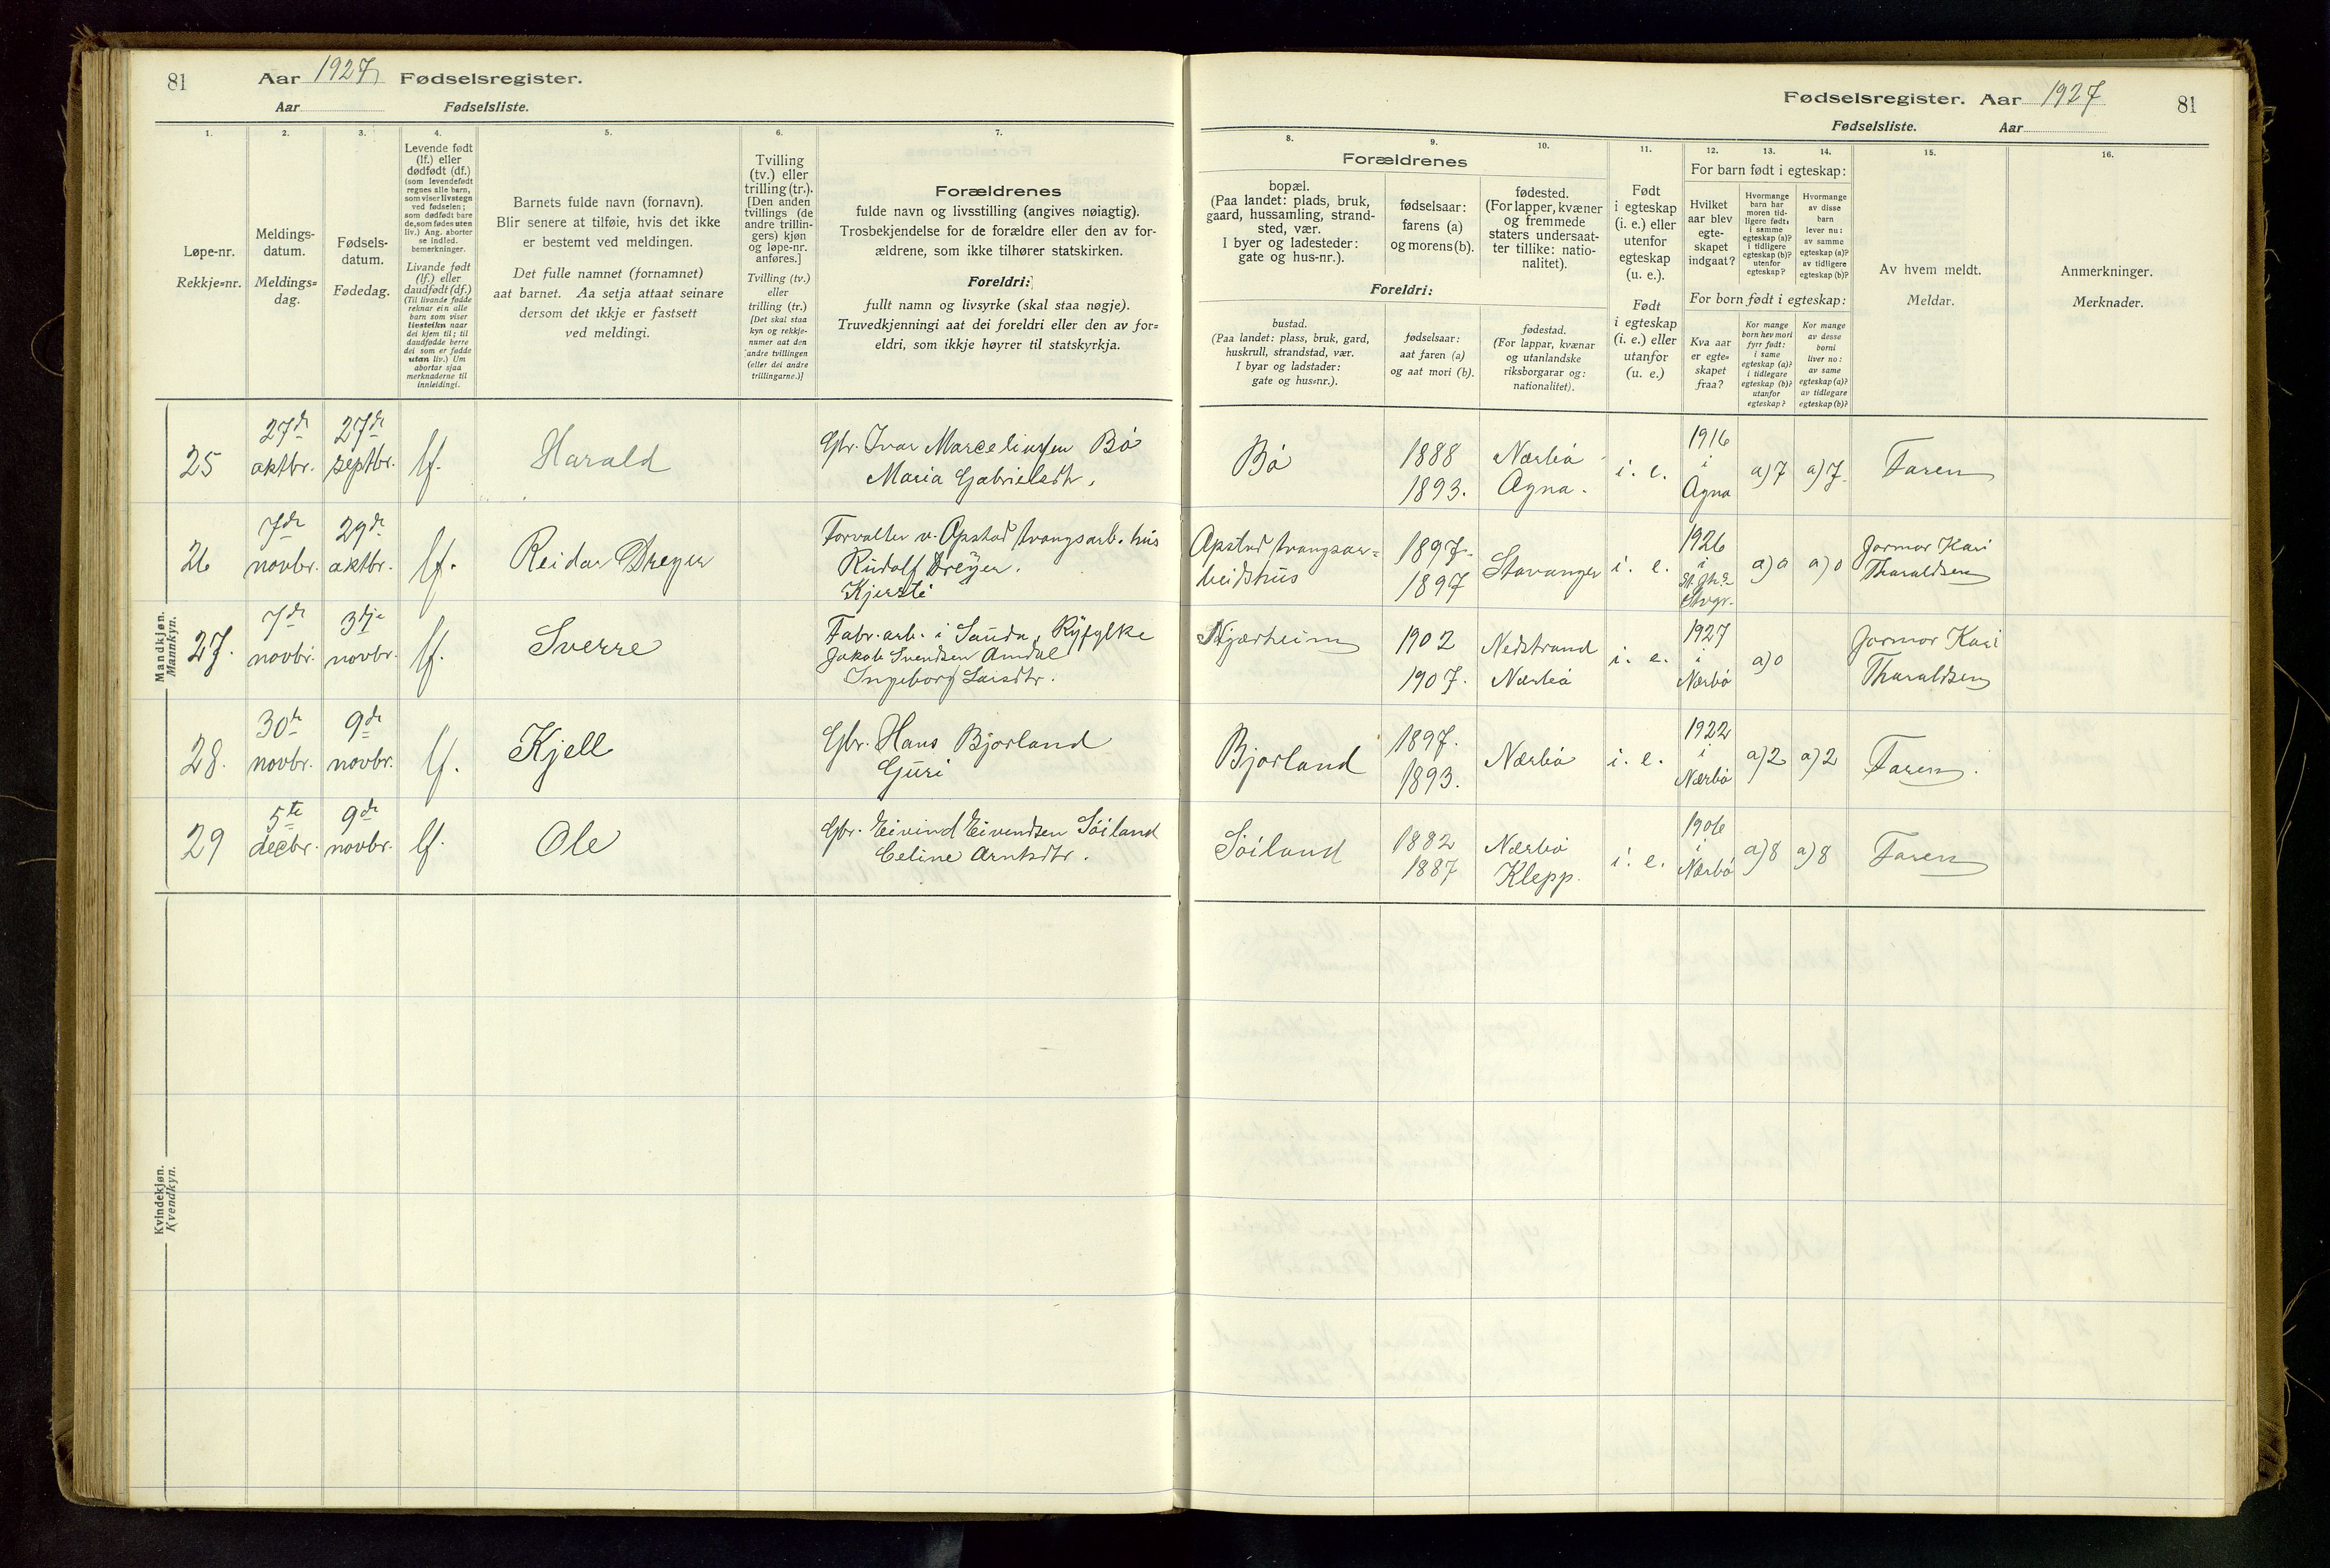 81
Aar 1927 Fødselsregister.
Aar Fødselsliste.
1. 2. 3. 4. 5. 6. 7.
Løpe-nr.
Rekkje=nr.
Meldings-
datum.
Meldings=
dag.
Fødsels-
datum.
Fødedag.
Levende født
(lf.) eller
dødfødt (df.)
(som levendefødt
regnes alle barn,
som viser livstegn
ved fødselen;
som dødfødt bare
de, som fødes uten
liv.) Ang. aborter
se indled.
bemerkninger.
Livande født
(lf.) eller
daudfødt (df.)
(Til livande fødde
reknar ein alle
barn som viser
livsteikn naar
dei kjem til; til
daudfødde berre
dei som er fødde
utan liv.) Um
abortar sjaa
merknaderne til
innleidingi.
Barnets fulde navn (fornavn).
Blir senere at tilføie, hvis det ikke
er bestemt ved meldingen.
Det fulle namnet (fornamnet)
aat barnet. Aa setja attaat seinare
dersom det ikkje er fastsett
ved meldingi.
Tvilling
(tv.) eller
trilling (tr.).
[Den anden
tvillings (de
andre trillin-
gers) kjøn
og løpe-nr.
anføres.]
Tvilling (tv.)
eller
trilling (tr.)
[Det skal staa
kyn og rekkje-
numer aat den
andre tvillingen
(eller dei andre
trillingarne.)]
Forældrenes
fulde navn og livsstilling (angives nøiagtig).
Trosbekjendelse for de forældre eller den av for-
ældrene, som ikke tilhører statskirken.
Foreldri:
fullt namn og livsyrke (skal staa nøgje).
Truvedkjenningi aat dei foreldri eller den av for=
eldri, som ikkje høyrer til statskyrkja.
Mandkjøn.
Mannkyn.
25 27de oktbr. 27de septbr. lf. Harald
Gbr. Ivar Marceliussen Bö
Maria Gabrielsdtr.
26 7de novbr. 29de oktbr. lf. Reidar Dreyer
Forvalter v. Opstad tvangsarb. hus
Rudolf Dreyer.
Kjersti
27. 7de novbr. 3dje novbr. lf. Sverre
Fabr. arb. i Sauda, Ryfylke
Jakob Svendsen Amdal
Ingeborg Larsdtr.
28. 30te novbr. 9de novbr. lf. Kjell
Gbr. Hans Bjorland
Guri
29 5te decbr. 9de novbr. lf. Ole
Gbr. Eivind Eivendsen Söiland
Celine Arntsdtr.
Kvindekjøn.
Kvendkyn.
Fødselsregister. Aar 1927 81
Fødselsliste. Aar
8. 9. 10. 11. 12. 13. 14. 15. 16.
Forældrenes
bopæl.
(Paa landet: plads, bruk,
gaard, hussamling, strand-
sted, vær.
I byer og ladesteder:
gate og hus-nr.).
fødselsaar:
farens (a)
og morens (b).
fødested.
(For lapper, kvæner
og fremmede
staters undersaat-
ter tillike: natio-
nalitet).
Foreldri:
bustad.
(Paa landet: plass, bruk, gard,
huskrull, strandstad, vær.
I byar og ladstader:
gate og hus=nr.).
fødselsaar:
aat faren (a)
og aat mori (b).
fødestad.
(For lappar, kvænar
og utanlandske
riksborgarar og:
nationalitet).
Født
i egteskap
(i. e.) eller
utenfor
egteskap
(u. e.).
Født
i egteskap
(i. e.) eller
utanfor
(u. e.)
For barn født i egteskap:
Hvilket
aar blev
egte-
skapet
indgaat?
Hvormange
barn har
moren tid-
ligere født:
i samme
egteskap (a)?
i tidligere
egteskap (b)?
utenfor
egteskap?
Hvormange
av disse
barn
lever nu:
av samme
egteskap (a)?
av tidligere
egteskap (b)?
For born født i egteskap:
Kva aar
er egte=
skapet
fraa?
Kor mange
born hev mori
fyrr født:
i same
egteskap (a)?
i tidlegare
egteskap (b)?
utanfor
egteskap?
Kor mange
av desse
borni
liver no:
av same
egteskap (a)?
av tidlegare
egteskap (b)?
Av hvem meldt.
Meldar.
Anmerkninger.
Merknader.
Bö 1888 1893. Nærbö Ogna. i. e. 1916 i Ogna a) 7 a) 7. Faren
Opstad tvangsar=
beidshus 1897. 1897 Stavanger i. e. 1926 i a) 0 a) 0 Jormor Kari
Tharaldsen
Njærheim 1902 1907. Nedstrand Nærbö i. e. 1927 i Nærbö a) 0 Jormor Kari
Tharaldsen
Bjorland 1897. 1893. Nærbö i. e. 1922 i Nærbö a) 2 a) 2 Faren.
Söiland 1882 1887 Nærbö Klepp. i. e. 1906 i Nærbö a) 8 a) 8 Faren